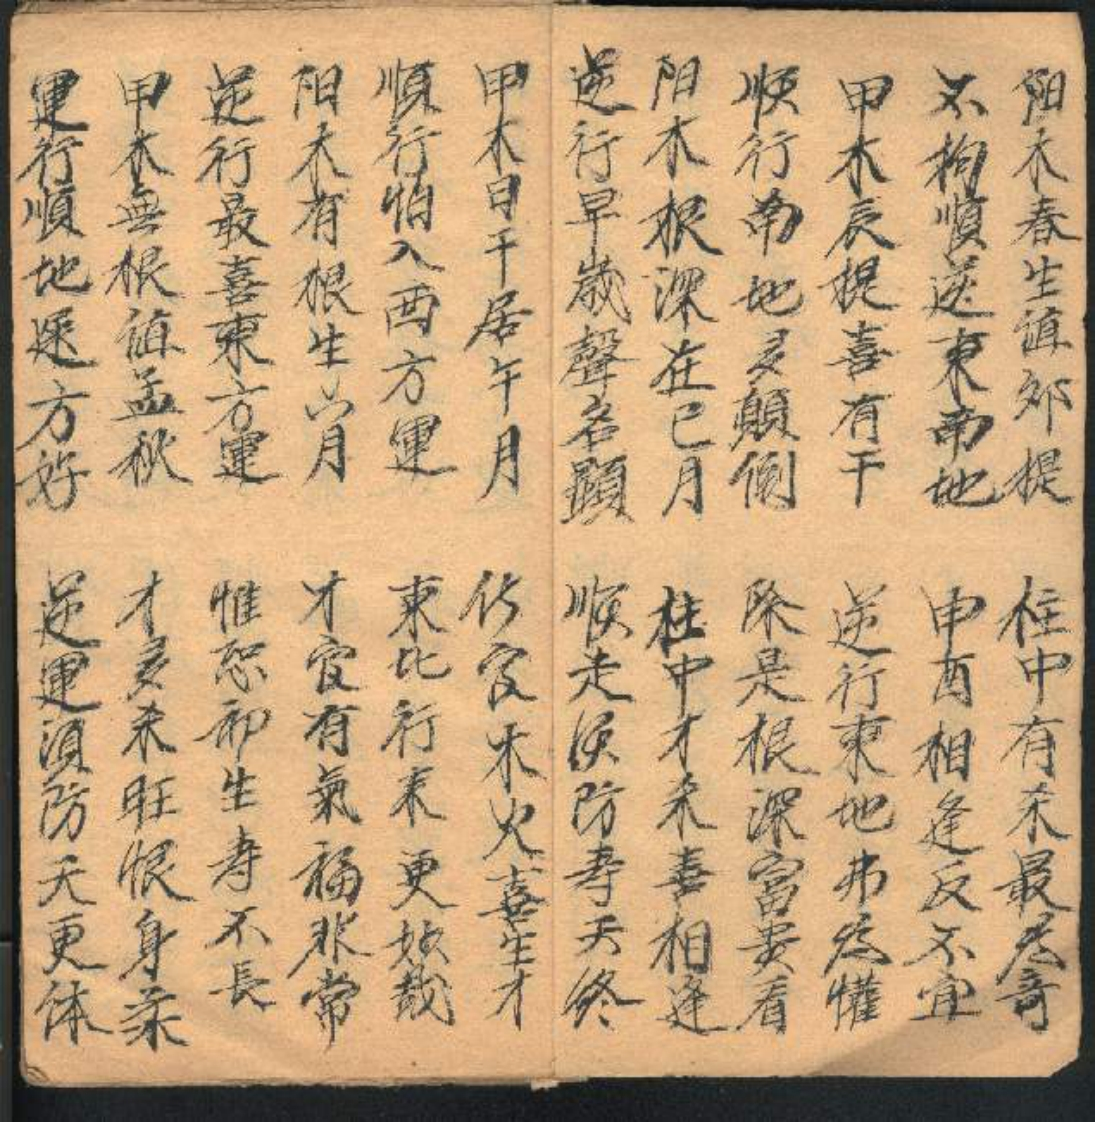 阳木春生值夘提 柱中有杀最为奇
不拘順逆東南地 申酉相逢反不宜
甲木辰提喜有干 逆行東地弗为懽
顺行南地多顛倒 除是根深富贵看
阳木根深在巳月 柱中才杀喜相逢
逆行早歲聲名顯 顺走须防寿夭终
甲木日干居午月 伤官木火喜生才
順行怕入西方運 東北行来更妙哉
阳木有根生六月 才官有氣福非常
逆行最喜東方運 惟恐印生寿不長
甲木無根值孟秋 才多杀旺恨身柔
運行順地方好 逆運須防夭更体